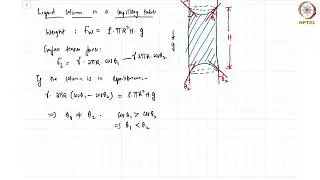 Liquid column in a capillary tube
Weight : Fw = ρ. πR²H. g
Surface tension force:
F_Σ = γ. 2πR. cosθ₁ - γ. 2πR. cosθ₂
If the column is in equilibrium
γ. 2πR (cosθ₁ - cosθ₂) = ρ. πR²H. g
⇒ θ₁ ≠ θ₂. cosθ₁ > cosθ₂
⇒ θ₁ < θ₂
θ₁
H
↓g
θ₂
θ₂
NPTEL